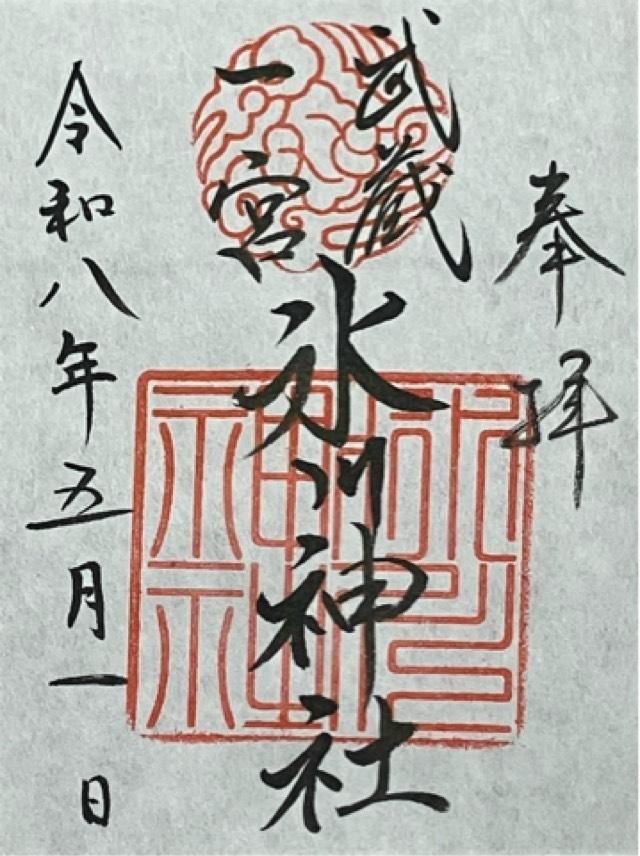 奉拝
武蔵
一宮
氷川神社
令和八年五月一日